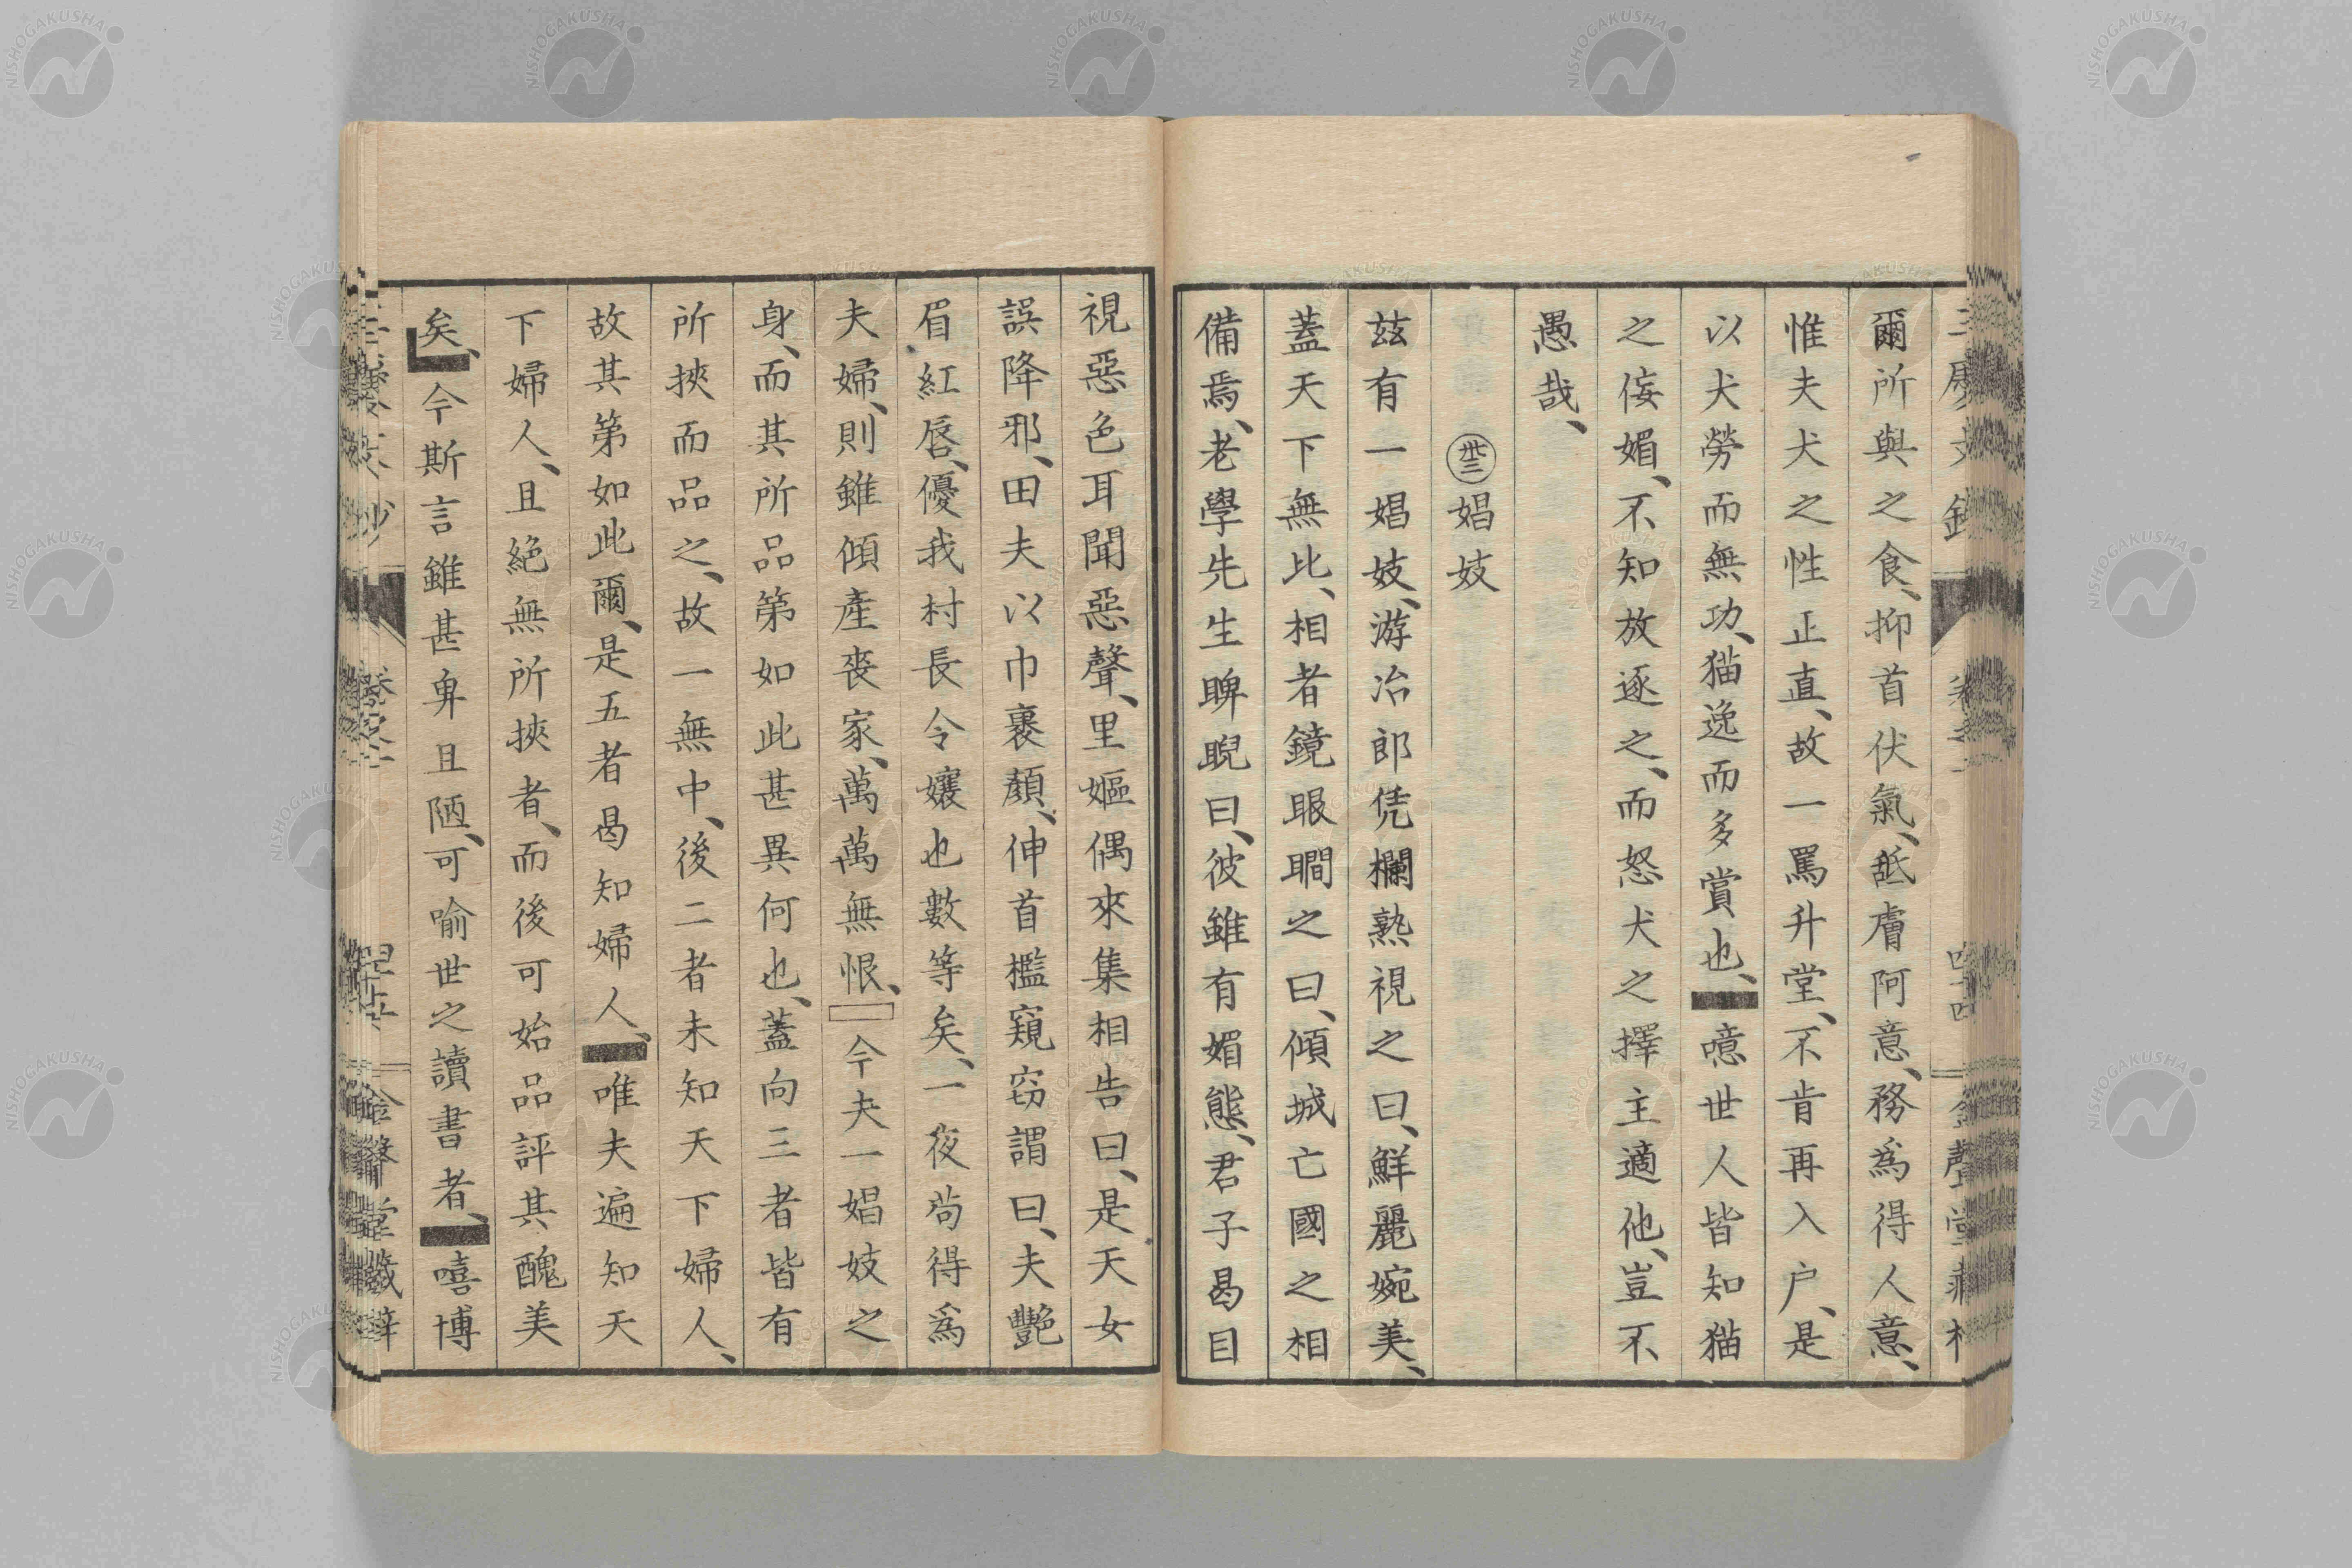 爾所與之食、抑首伏氣、舐膚阿意、務爲得人意、
惟夫犬之性正直、故一罵升堂、不肯再入户、是
以犬勞而無功、猫逸而多賞也、噫世人皆知猫
之侫媚、不知放逐之、而怒犬之擇主適他、豈不
愚哉、
㊂娼妓
玆有一娼妓、游冶郎凭欄熟視之曰、鮮麗婉美、
蓋天下無比、相者鏡眼瞷之曰、傾城亡國之相
備焉、老學先生睥睨曰、彼雖有媚態、君子曷目
視惡色耳聞惡聲、里嫗偶來集相告曰、是天女
誤降邪、田夫以巾裹顏、伸首檻窺窃謂曰、夫艷
眉紅唇、優我村長令孃也數等矣、一夜苟得爲
夫婦、則雖傾產喪家、萬萬無恨、今夫一娼妓之
身、而其所品第如此甚異何也、蓋向三者皆有
所挾而品之、故一無中、後二者未知天下婦人、
故其第如此爾、是五者曷知婦人、唯夫遍知天
下婦人、且絕無所挾者、而後可始品評其醜美
矣、今斯言雖甚卑且陋、可喻世之讀書者、嘻博